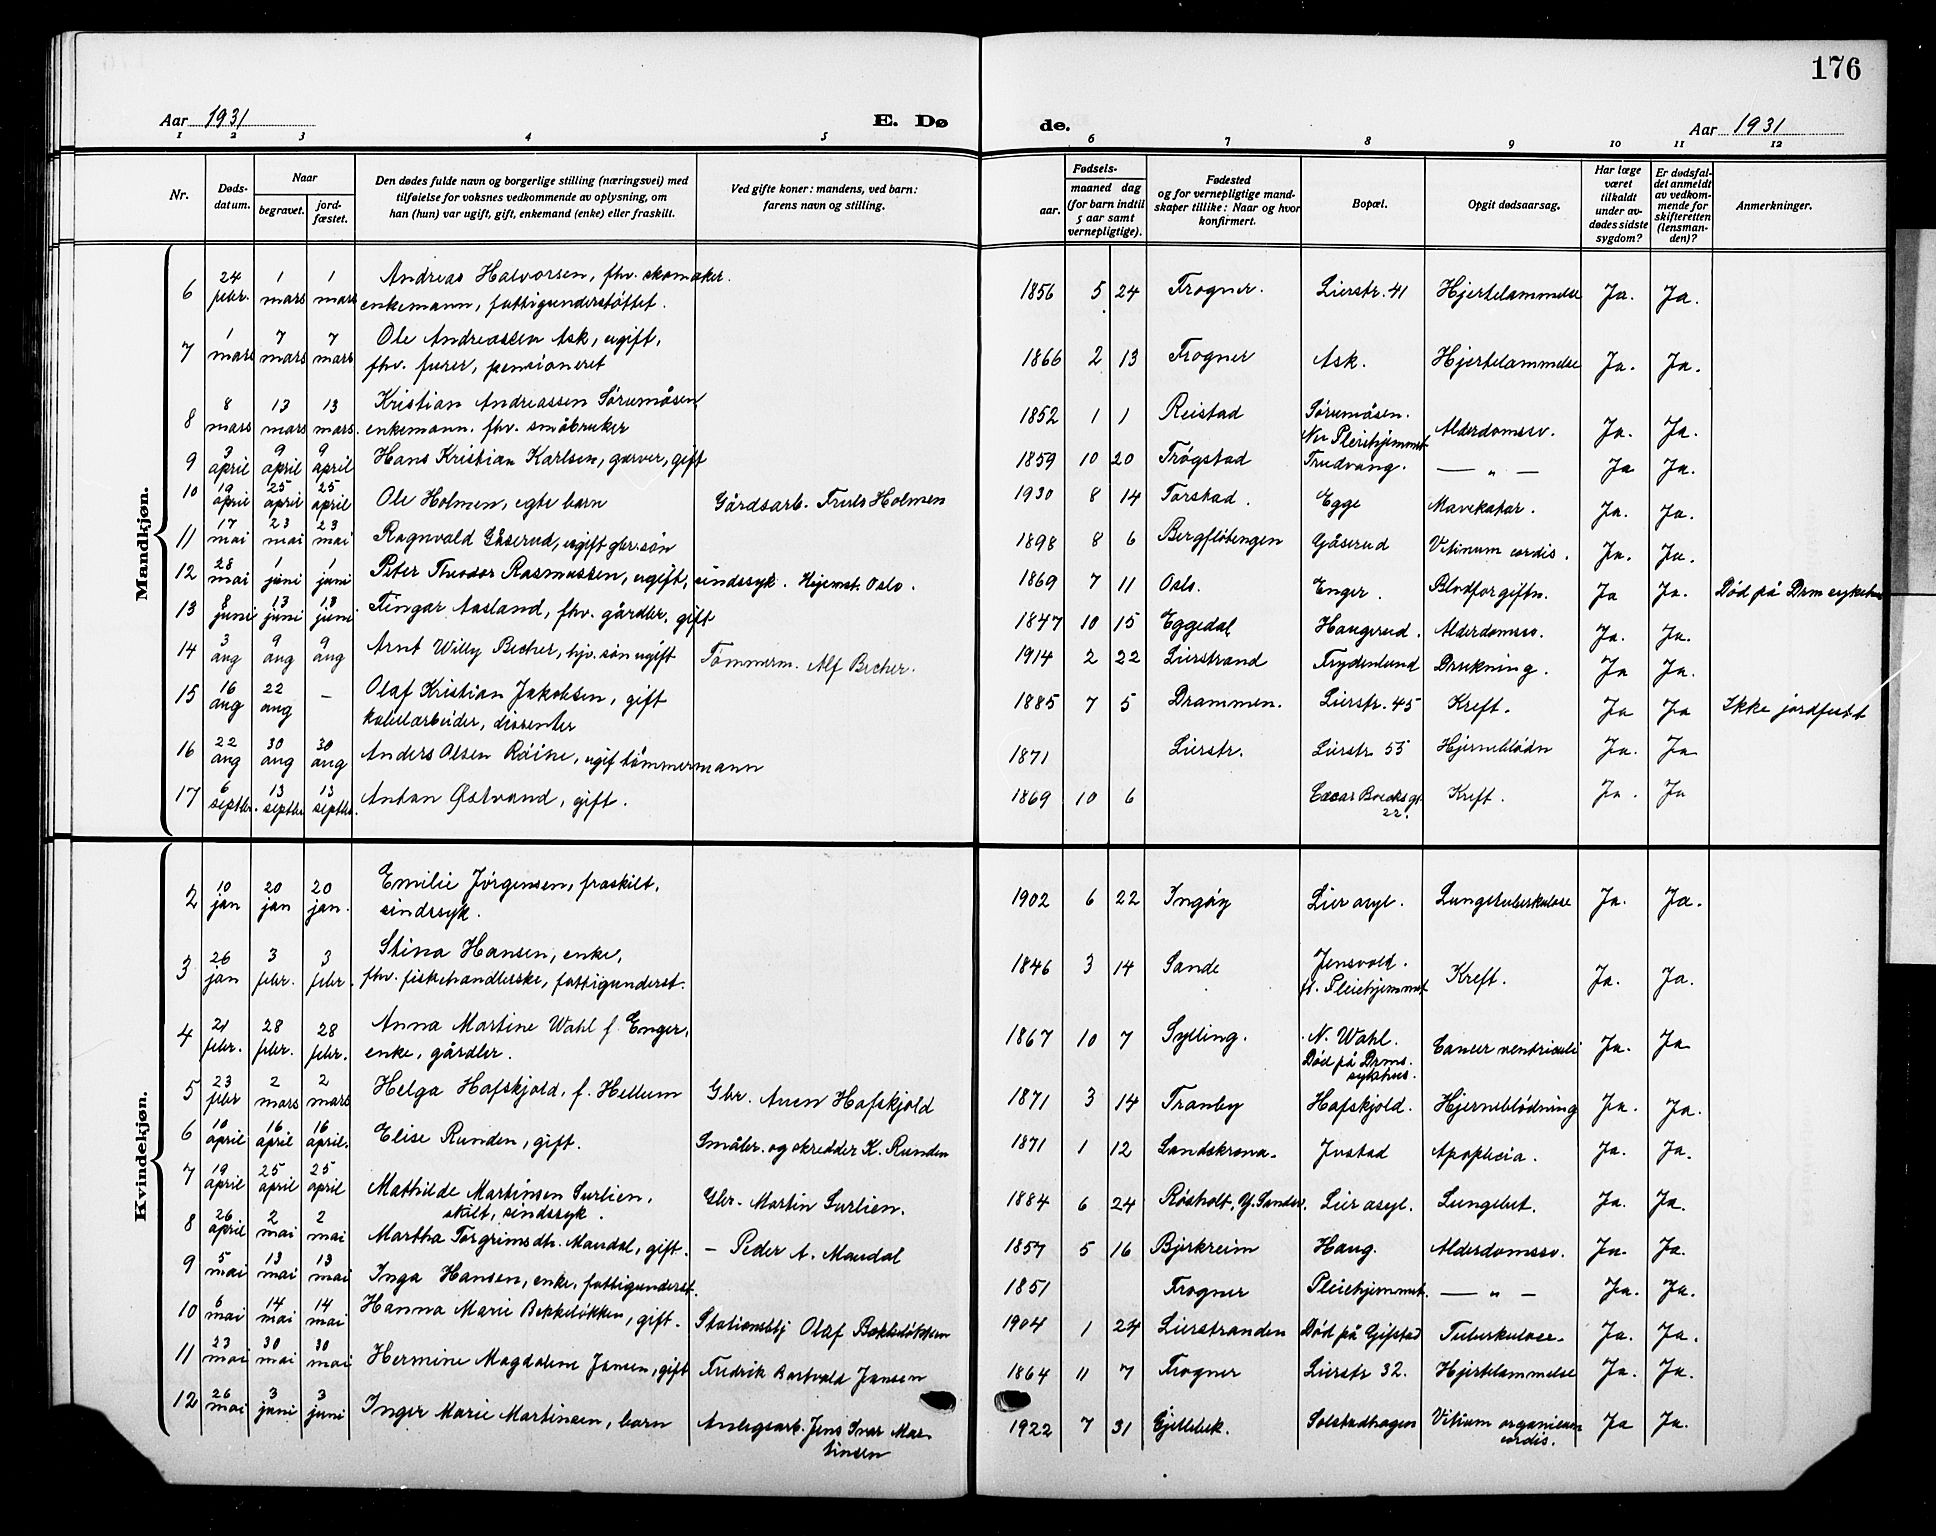 176
Aar 1931 E. Dø de. Aar 1931
1 2 3 4 5 6 7 8 9 10 11 12
Nr.
Døds-
datum.
Naar
begravet.
jord-
fæstet.
Den dødes fulde navn og borgerlige stilling (næringsvei) med
tilføielse for voksnes vedkommende av oplysning, om
han (hun) var ugift, gift, enkemand (enke) eller fraskilt.
Ved gifte koner: mandens, ved barn:
farens navn og stilling.
Fødsels-
aar.
maaned dag
(for barn indtil
5 aar samt
vernepligtige).
Fødested
og for vernepligtige mand-
skaper tillike: Naar og hvor
konfirmert.
Bopæl.
Opgit dødsaarsag.
Har læge
været
tilkaldt
under av-
dødes sidste
sygdom?
Er dødsfal-
det anmeldt
av vedkom-
mende for
skifteretten
(lensman-
den)?
Anmerkninger.
Mandkjøn.
6 24 febr. 1 mars 1 mars Andreas Halvorsen, fhv. skomaker. 1856 5 24 Frogner. Lierstr. 41 Hjertelammelse Ja. Ja.
enkemann, fattigunderstøttet.
7 1 mars 7 mars 7 mars Ole Andreassen Ask, ugift, 1866 2 13 Frogner Ask. Hjertelammelse Ja. Ja.
fhv. furer, pensioneret
8 8 mars 13 mars 13 mars. Kristian Andreassen Sørumåsen, 1852 1 1 Reistad Sørumåsen. Alderdomssv. Ja. Ja.
enkemann. fhv. småbruker Nu Pleiehjemmet
9 3 april 9 april 9 april Hans Kristian Karlsen, garver, gift 1859 10 20 Trøgstad Trudvang. — " — Ja Ja.
10 19 april 25 april 25 april Ole Holmen, egte barn Gårdsarb. Truls Holmen 1930 8 14 Torstad. Egge Mavekatar. Ja. Ja.
11 17 mai 23 mai 23 mai Ragnvald Gåserud, ugift gbr. søn 1898 8 6 Bergflødtengen Gåserud Vitinum cordis. Ja. Ja.
12 28 mai 1 juni 1 juni Peter Theodor Rasmussen, ugift, sindssyk. Hjemst. Oslo. 1869 7 11 Oslo. Enger. Blodforgiftn. Ja Ja. Død på Drm sykehus
13 8 juni 13 juni 13 juni Fingar Aasland, fhv. gårdbr, gift 1847 10 15 Eggedal Haugerud. Alderdomssv. Ja. Ja.
14 3 aug 9 aug 9 aug Arnt Willy Becher, hjv. søn ugift Tømmerm. Alf Becher. 1914 2 22 Lierstrand Frydenlund Drukning. Ja Ja.
15 16 aug 22 aug — Olaf Kristian Jakobsen, gift 1885 7 5 Drammen. Lierstr. 45 Kreft. Ja Ja Ikke jordfest
kabelarbeider, dissenter
16 22 aug 30 aug 30 aug Anders Olsen Råine, ugif tømmermann 1871 Lierstr. Lierstr 55 Hjerneblødn Ja. Ja
17 6 septbr. 13 septbr 13 septbr. Anton Østvand, gift. 1869 10 6 Kreft. Ja. Ja
22.
Kvindekjøn.
2 10 jan 20 jan 20 jan. Emilie Jørgensen, fraskilt, 1902 6 22 Ingøy Lier asyl. Lungetuberkulose Ja. Ja.
sindssyk.
3 26 jan 3 febr. 3 febr. Stina Hansen, enke, 1846 3 14 Sande Jensvold. Kreft. Ja. Ja.
fhv. fiskehandlerske, fattigunderst. Pleiehjemmet
4 21 febr. 28 febr. 28 febr. Anna Martine Wahl f. Enger, 1867 10 7 Sylling. N. Wahl. Cancer ventriculi Ja. Ja
enke, gårdbr. Død på Drms. sykhus.
5 23 febr 2 mars 2 mars Helga Hafskjold, f. Hellum Gbr. Aren Hafskjold 1871 3 14 Tranby Hafskjold. Hjerneblødning Ja. Ja.
6 10 april 16 april 16 april. Elise Runden, gift. Småbr. og skredder K. Runden 1871 1 12 Landskrona. Justad Apoplecia. Ja. Ja.
7 19 april 25 april 25 april Mathilde Martinsen Surlien, Gbr. Martin Surlien. 1884 6 24 Røsholt, Y. Sandsv. Lier asyl. Lungebet. Ja. Ja.
skilt, sindssyk.
8 26 april 2 mai 2 mai Martha Torgrimsdtr. Maudal, gift. — Peder A. Maudal 1857 5 16 Bjerkreim Haug. Alderdomssv. Ja. Ja.
9 5 mai 13 mai 13 mai Inga Hansen, enke, fattigunderst. 1851 Frogner Pleiehjemmet. — " — Ja. Ja.
10 6 mai 14 mai 14 mai Hanna Marie Bekkeløkken, gift. Stationsbtj Olaf Bekkeløkken 1904 1 24 Lierstranden Død på Gifstad Tuberkulose. Ja. Ja.
11 23 mai 30 mai 30 mai Hermine Magdalene Jansen, gift Fredrik Bartvald Jansen 1864 11 7 Frogner Lierstr 32. Hjertelammelse Ja. Ja.
12 26 mai 3 juni 3 juni Inger Marie Martinsen, barn Anlegsarb. Jens Ivar Mar- 1922 7 31 Gjellebek. Solstadhagen Vitium organicum Ja Ja.
tinsen cordis.